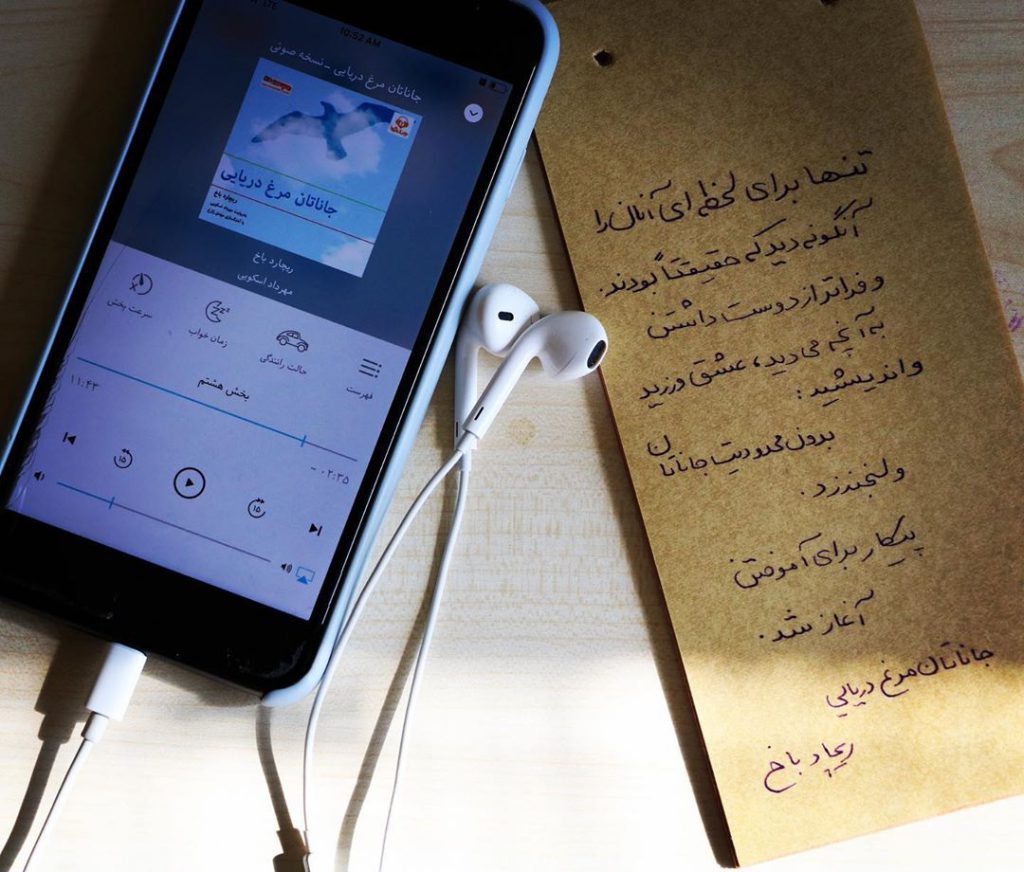 LTE
10:52 AM
جاناتان مرغ دریایی - نسخه صوتی
جاناتان مرغ دریایی
ریچارد باخ
ریچارد باخ
مهرداد اسکویی
سرعت پخش
زمان خواب
حالت رانندگی
فهرست
بخش هشتم
۱۱:۴۳
- ۰۲:۳۵
۱۵
۱۵
تنها برای لحظه ای آنان را
آنگونه دید که حقیقتاً بودند.
و فراتر از دوست داشتن
به آنچه می دید، عشق ورزید
و اندیشید:
بدون محدودیت جاناتان
و لبخند زد.
پیکار برای آموختن
آغاز شد.
جاناتان مرغ دریایی
ریچارد باخ